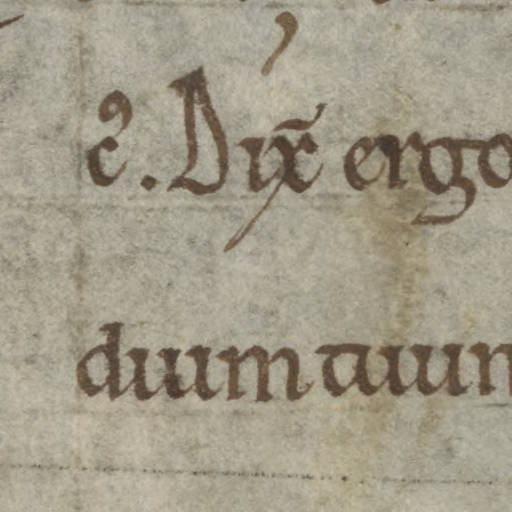 c̉. Dix̄ ergo
duum auun